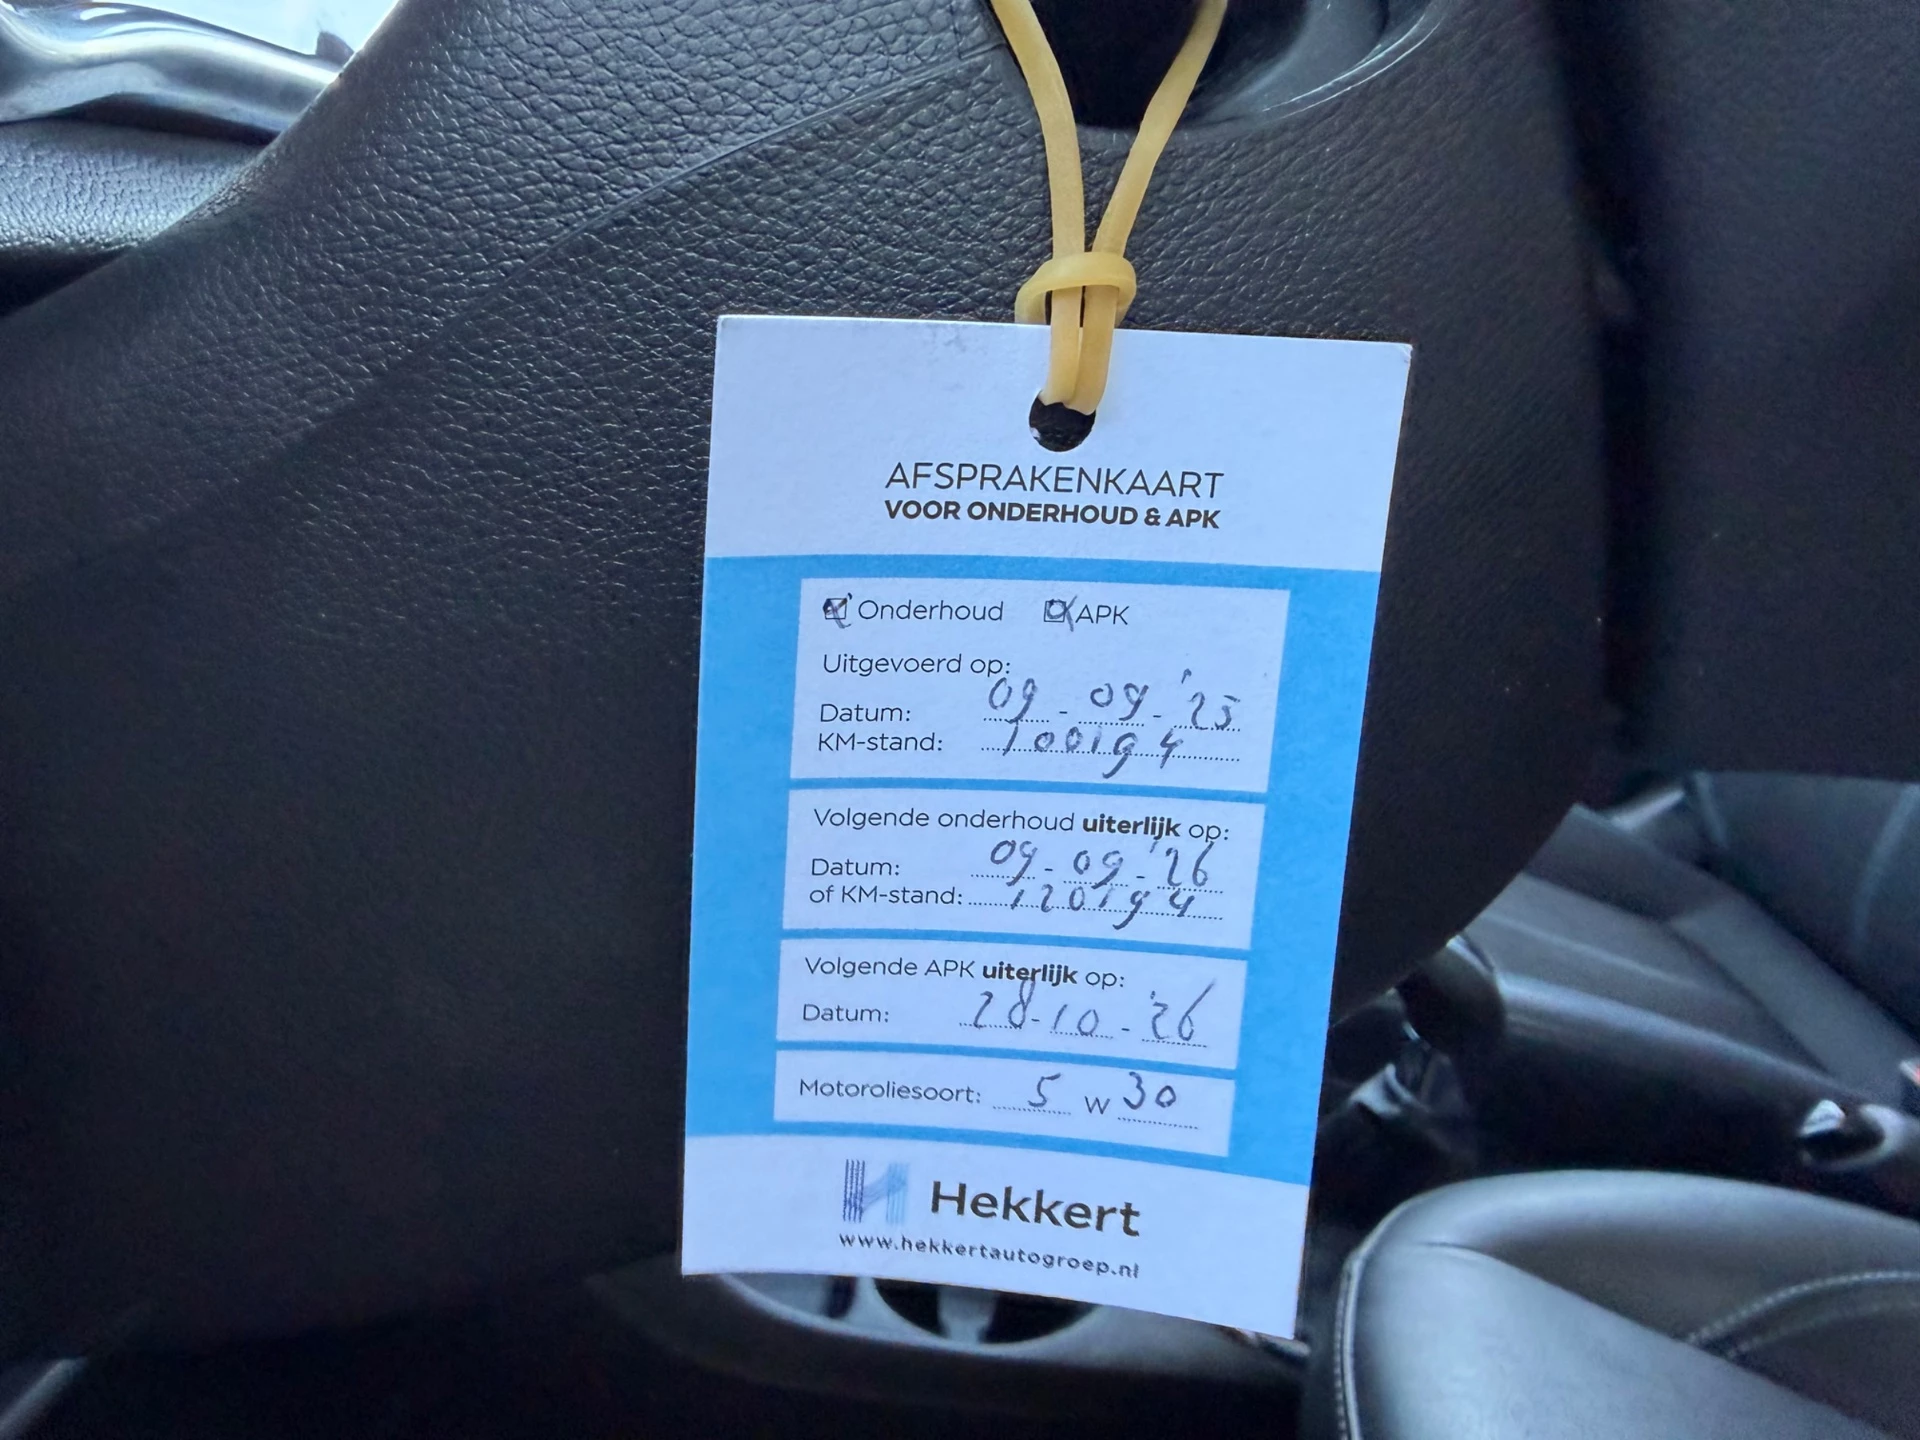 AFSPRAKENKAART
VOOR ONDERHOUD & APK
Onderhoud APK
Uitgevoerd op:
Datum: 09 - 09 - '25
KM-stand: 100194
Volgende onderhoud uiterlijk op:
Datum: 09 - 09 - '26
of KM-stand: 120194
Volgende APK uiterlijk op:
Datum: 28 - 10 - '26
Motoroliesoort: 5 W 30
Hekkert
www.hekkertautogroep.nl